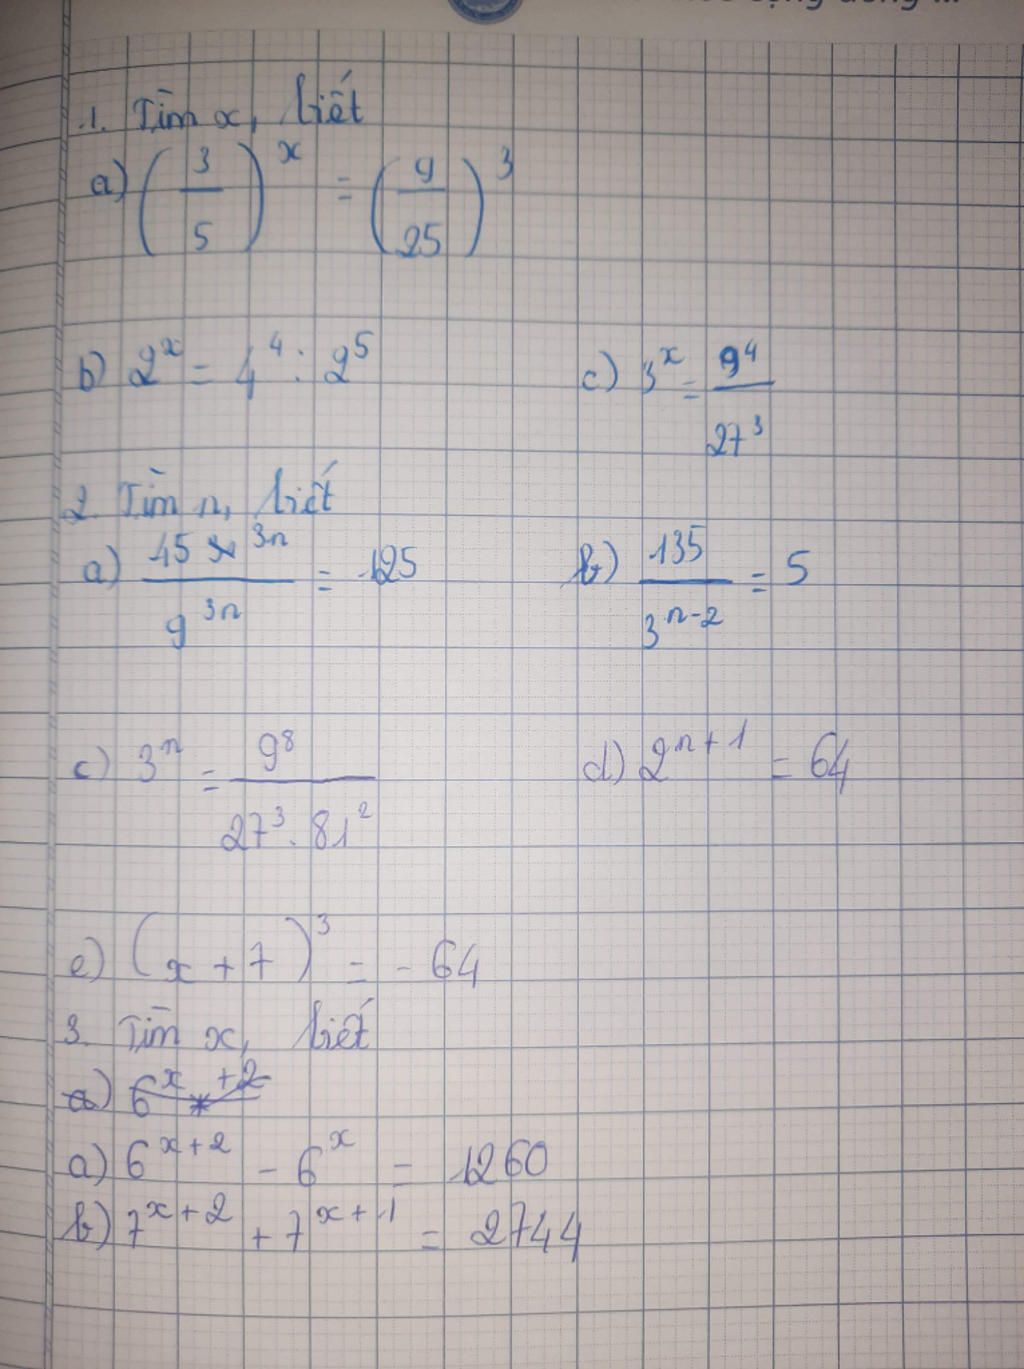 1. Tìm x, biết
a) (3/5)^x = (9/25)^3
b) 2^x = 4^4 : 2^5
c) 3^x = 9^4/27^3
2. Tìm n, biết
a) 45^3n/9^3n = 125
b) 135/3^(n-2) = 5
c) 3^n = 9^8/(27^3 . 81^2)
d) 2^(n+1) = 64
e) (x + 7)^3 = -64
3. Tìm x, biết
a) 6^(x+2) - 6^x = 1260
b) 7^(x+2) + 7^(x+1) = 2744